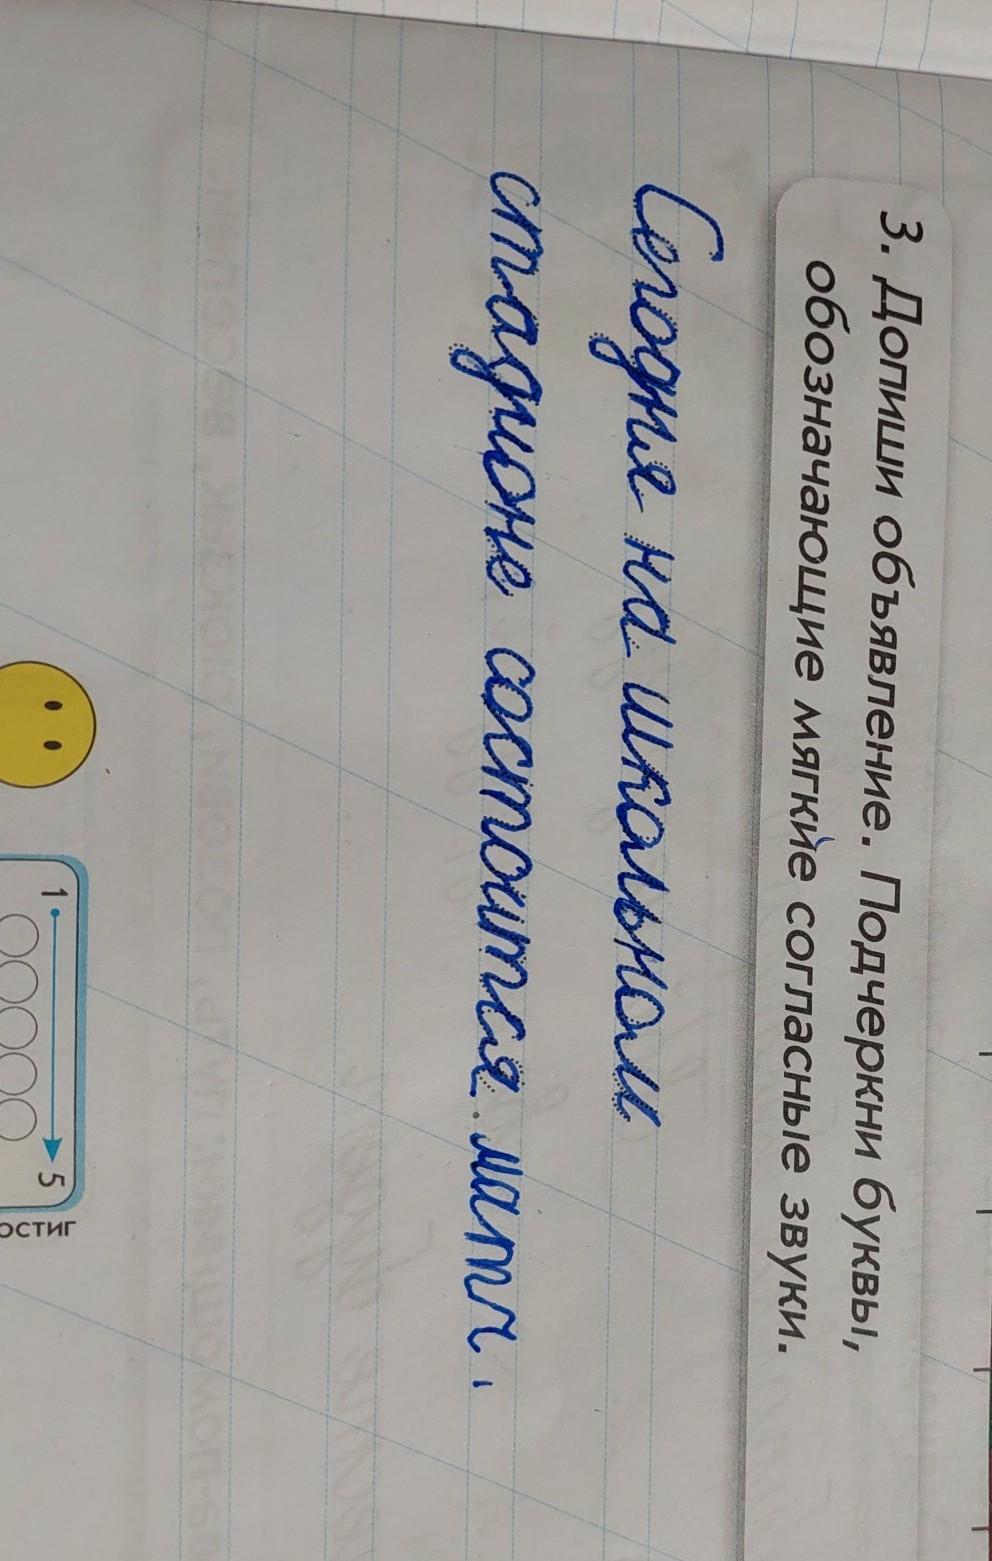 3. Допиши объявление. Подчеркни буквы,
обозначающие мягкие согласные звуки.
Сегодня на школьном
стадионе состоится матч.
1 5
остиг